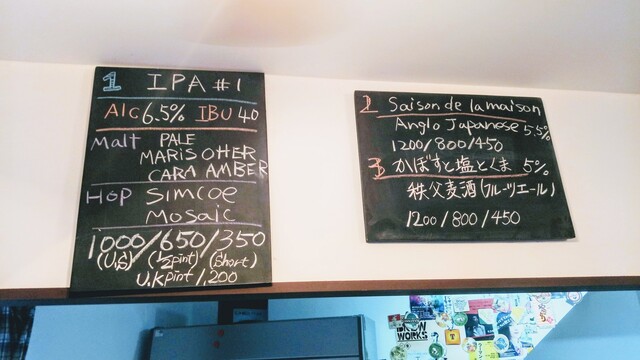 1 IPA #1
Alc 6.5% IBU 40
Malt PALE
MARIS OTTER
CARA AMBER
Hop Simcoe
Mosaic
1000/650/350
(U.S) (1/2pint) (Short)
U.K pint 1,200
2 Saison de la maison
Anglo Japanese 5.5%
1200/800/450
3 かぼすと塩とくま 5%
秩父麦酒(フルーツエール)
1200/800/450
BREW
WORKS